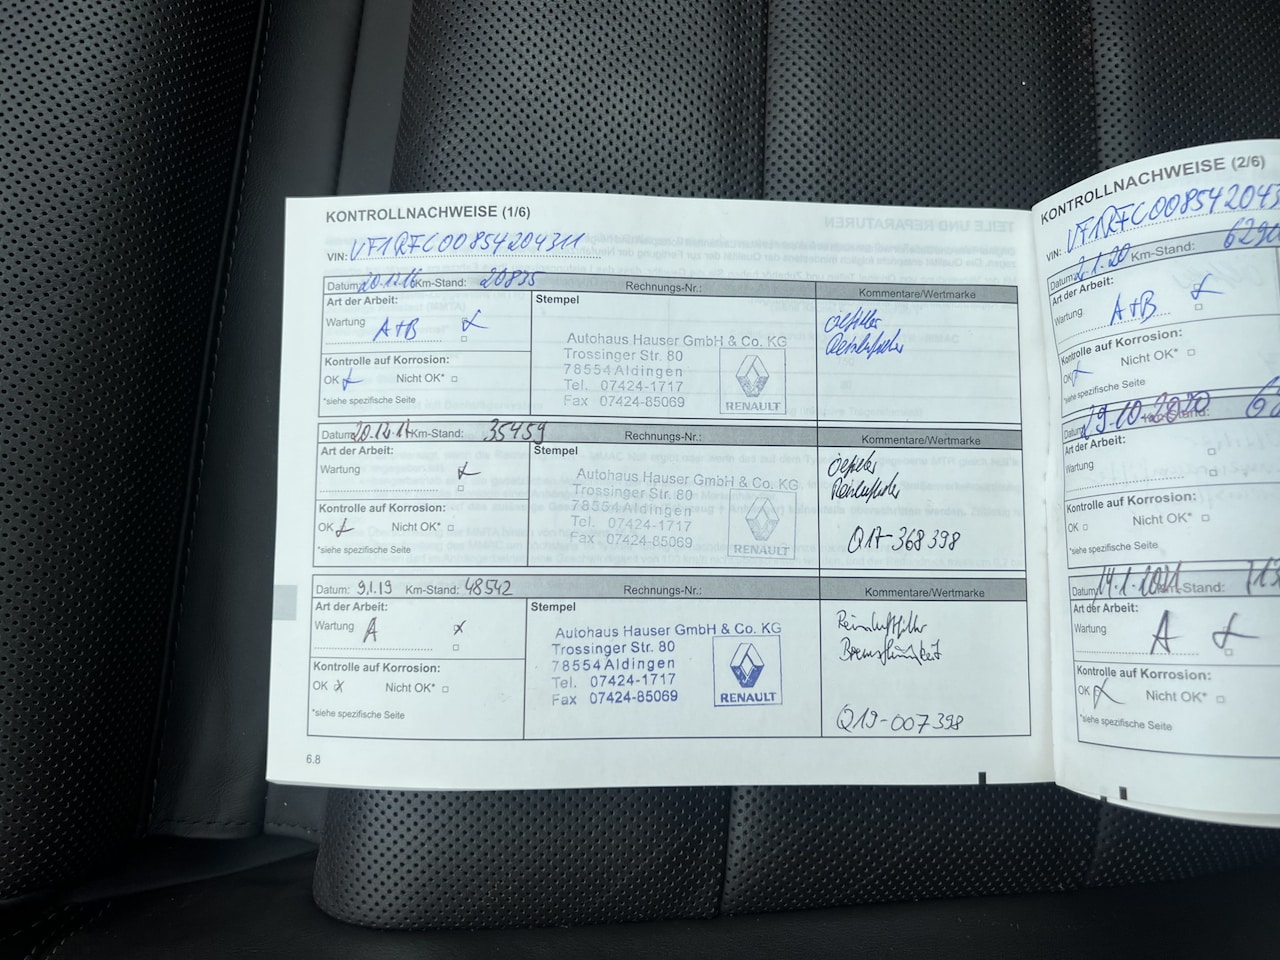 KONTROLLNACHWEISE (1/6)
VIN: VF1RFC00854204311
Datum: 20.12.16 Km-Stand: 20835 Rechnungs-Nr.: Kommentare/Wertmarke
Art der Arbeit:
Wartung A+B
Kontrolle auf Korrosion:
OK Nicht OK*
*siehe spezifische Seite
Stempel
Autohaus Hauser GmbH & Co. KG
Trossinger Str. 80
78554 Aldingen
Tel. 07424-1717
Fax 07424-85069
RENAULT
Ölfilter
Datum: 20.12.17 Km-Stand: 35459 Rechnungs-Nr.: Kommentare/Wertmarke
Art der Arbeit:
Wartung
Kontrolle auf Korrosion:
OK Nicht OK*
*siehe spezifische Seite
Stempel
Autohaus Hauser GmbH & Co. KG
Trossinger Str. 80
78554 Aldingen
Tel. 07424-1717
Fax 07424-85069
RENAULT
Ölfilter
Q17-368398
Datum: 9.1.19 Km-Stand: 48542 Rechnungs-Nr.: Kommentare/Wertmarke
Art der Arbeit:
Wartung A
Kontrolle auf Korrosion:
OK Nicht OK*
*siehe spezifische Seite
Stempel
Autohaus Hauser GmbH & Co. KG
Trossinger Str. 80
78554 Aldingen
Tel. 07424-1717
Fax 07424-85069
RENAULT
Reinluftfilter
Bremsflüssigkeit
Q19-007398
6.8
KONTROLLNACHWEISE (2/6)
VIN: VF1RFC008542043
Datum: 2.1.20 Km-Stand: 6290
Art der Arbeit:
Wartung A+B
Kontrolle auf Korrosion:
OK Nicht OK*
*siehe spezifische Seite
Datum: 29.10.2020 Km-Stand:
Art der Arbeit:
Wartung
Kontrolle auf Korrosion:
OK Nicht OK*
*siehe spezifische Seite
Datum: 14.1. Km-Stand:
Art der Arbeit:
Wartung A
Kontrolle auf Korrosion:
OK Nicht OK*
*siehe spezifische Seite